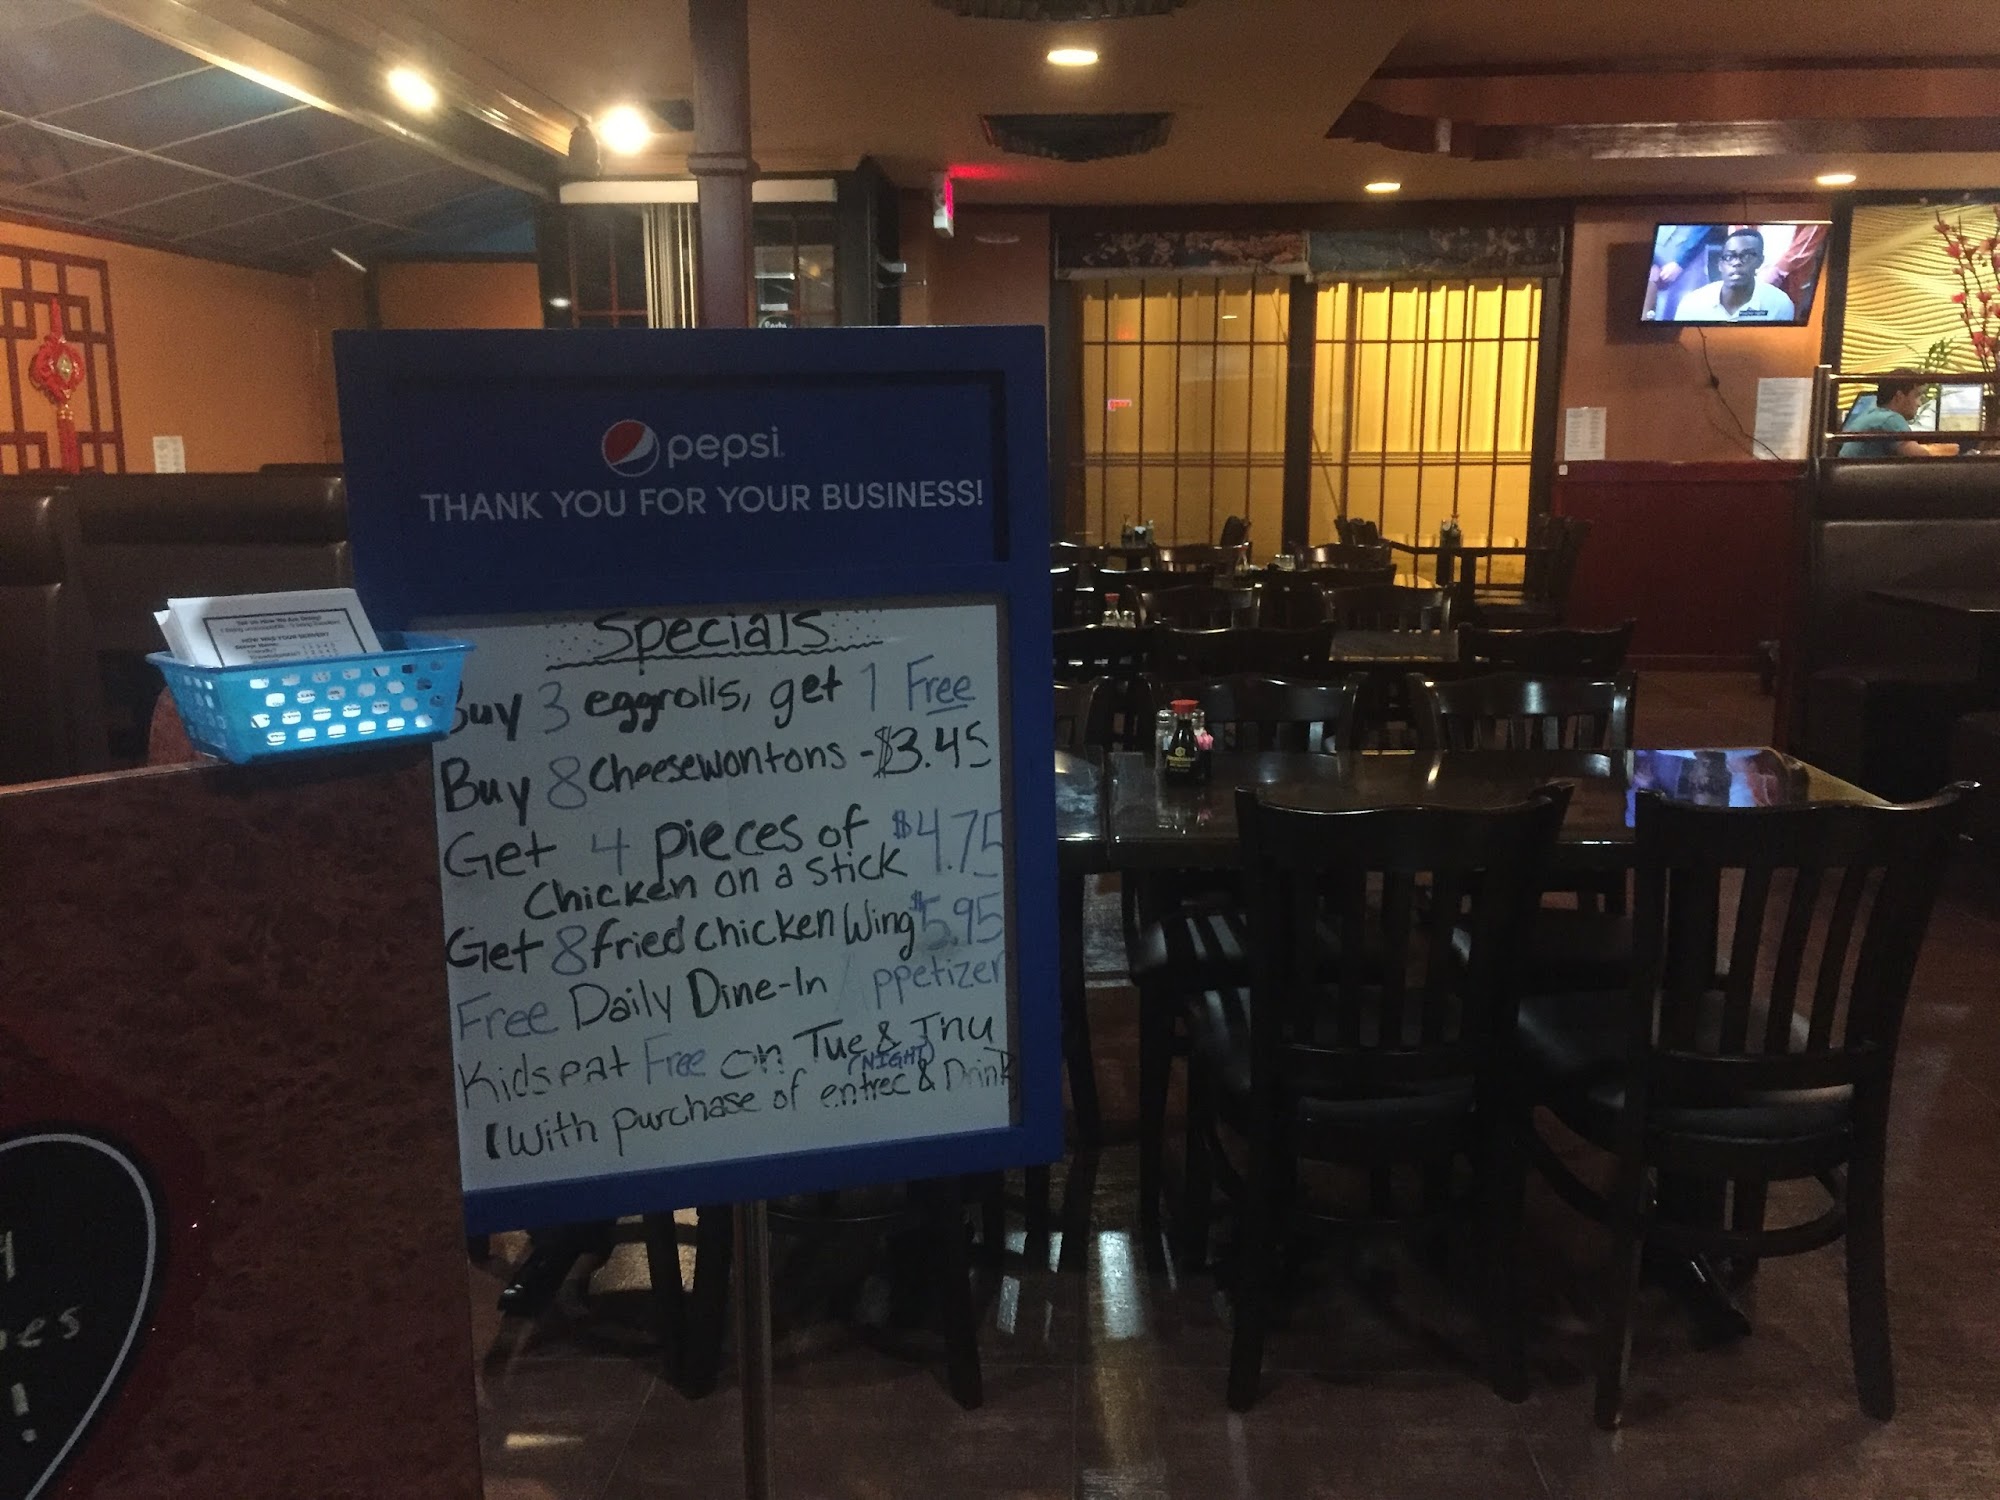 pepsi
THANK YOU FOR YOUR BUSINESS!
Specials
Buy 3 eggrolls, get 1 Free
Buy 8 Cheesewontons - $3.45
Get 4 pieces of $4.75
Chicken on a stick
Get 8 fried chicken Wing $5.95
Free Daily Dine-In Appetizer
Kids eat Free on Tue & Thu
(NIGHT)
(With purchase of entree & Drink
HOW WAS YOUR SERVER?